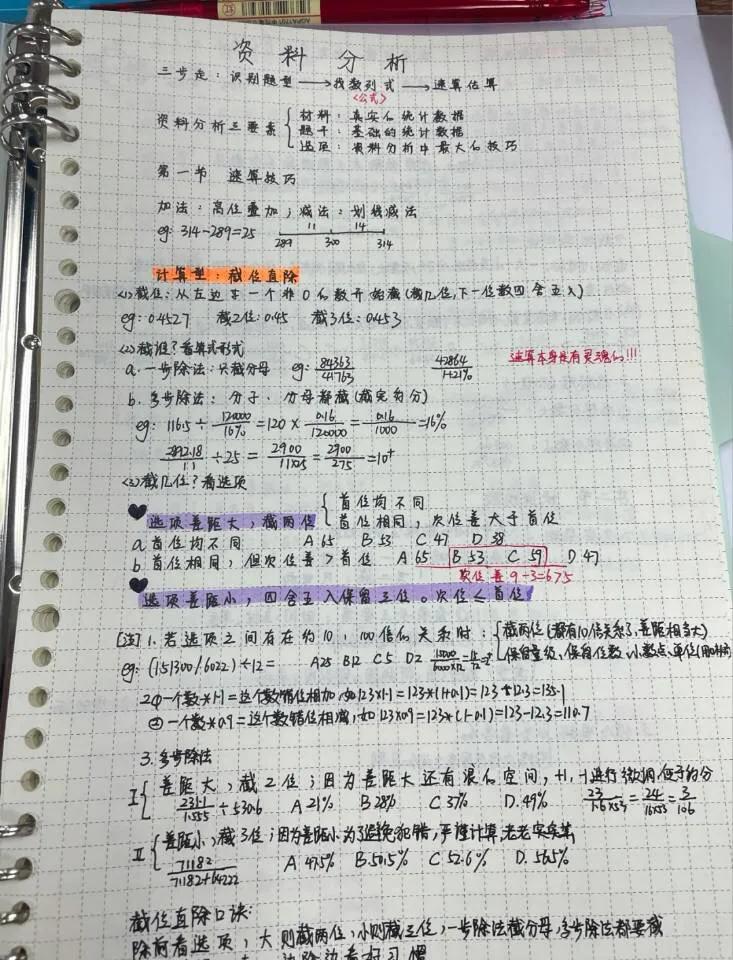 资料分析
三步走：识别题型 → 找数列式 → 速算估算
<公式>
资料分析三要素
材料：真实的统计数据
题干：基础的统计数据
选项：资料分析中最大的技巧
第一节 速算技巧
加法：高位叠加；减法：划线减法
eg: 314-289=25
11 14
289 300 314
计算型：截位直除
<1>截位：从左边第一个非0的数开始截(截几位，下一位数四舍五入)
eg: 0.4527 截2位：0.45 截3位：0.453
<2>截谁？看算式形式
a. 一步除法：只截分母 eg: 84363/41763 42864/1+21%
速算本身是有灵魂的!!!
b. 多步除法：分子、分母都截(截完约分)
eg: 116.5÷120000/16%=120×0.16/120000=0.16/1000=16%
2892.18/1.1÷25=2900/11×25=2900/275=10+
<3>截几位？看选项
选项差距大，截两位
首位均不同
首位相同，次位差大于首位
a 首位均不同 A 65 B 53 C 47 D 38
b 首位相同，但次位差>首位 A 65 B 53 C 59 D.47
次位差 9-3=6>5
选项差距小，四舍五入保留三位。次位≤首位
[注] 1. 若选项之间存在约10，100倍的关系时：
截两位(都有10倍关系了，差距相当大)
保留量级，保留位数、小数点、单位
eg: (151300/6022)÷12= A25 B12 C5 D2
2.① 一个数*1.1=这个数错位相加，如123×1.1=123*(1+0.1)=123+12.3=135.1
② 一个数*0.9=这个数错位相减，如123×0.9=123*(1-0.1)=123-12.3=110.7
3. 多步除法
I 差距大，截2位；因为差距大还有浪的空间，+1，-1进行微调，便于约分
2311/1.555÷530.6 A 21% B 28% C 37% D.49% 23/1.6×53=24/16×53=3/106
II 差距小，截3位；因为差距小为了避免犯错，严谨计算，老老实实算
71182/71182+64222 A 47.5% B.50.5% C 52.6% D. 56.5%
截位直除口诀：
除前看选项，大则截两位，小则截三位，一步除法截分母，多步除法都要截
边除边看好习惯